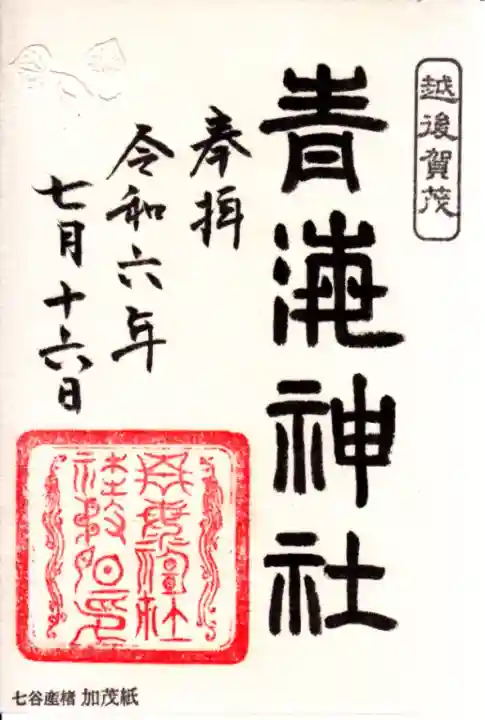 越後賀茂
青海神社
奉拝
令和六年
七月十六日
七谷産楮 加茂紙